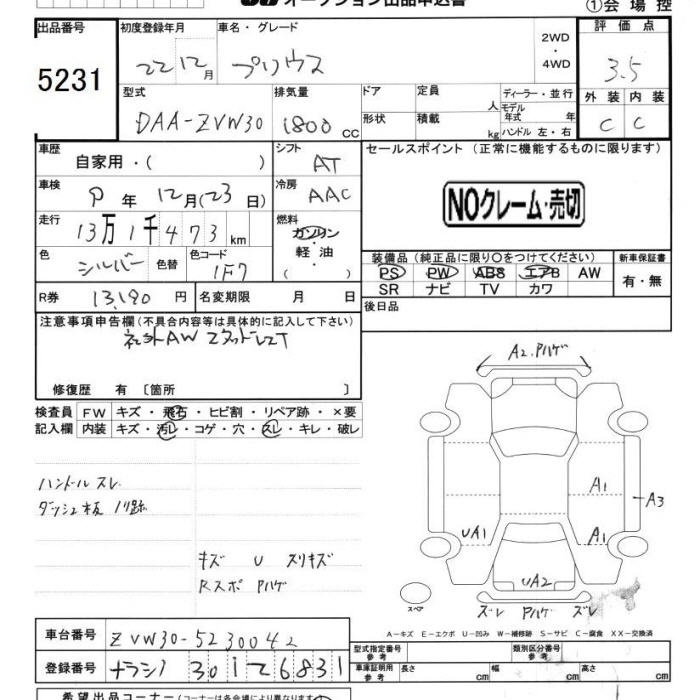 オークション出品申込書
①会場控
出品番号 5231
初度登録年月 22 12月
車名・グレード プリウス
2WD・4WD
評価点 3.5
外装 C 内装 C
型式 DAA-ZVW30
排気量 1800 CC
ドア 形状
定員 人 積載 kg
ディーラー・並行
モデル年式 年式
ハンドル 左・右
車歴 自家用・( )
シフト AT
セールスポイント(正常に機能するものに限ります)
NOクレーム・売切
車検 年 12月(23日)
冷房 AAC
走行 13万1千473km
燃料 ガソリン・軽油・( )
色 シルバー 色替 色コード 1F7
装備品(純正品に限り○をつけてください)
PS PW ABS エアB AW
SR ナビ TV カワ
新車保証書 有・無
R券 13,190円 名変期限 月 日
後日品
注意事項申告欄(不具合内容等は具体的に記入して下さい)
社外AW
修復歴 有 〔箇所 〕
検査員記入欄
FW キズ・飛石・ヒビ割・リペア跡・×要
内装 キズ・汚レ・コゲ・穴・スレ・キレ・破レ
ハンドル スレ
ダッシュ板 ノリ跡
キズ U スリキズ
Rスポ Pハゲ
A2. Pハゲ
A1
A3
UA1
A1
UA2
スペア
ズレ Pハゲ ズレ
A-キズ E-エクボ U-凹み W-補修跡 S-サビ C-腐食 XX-交換済
車台番号 ZVW30-5230042
登録番号 ナラシノ 301 て 6831
型式指定番号 参考
類別区分番号
車庫証明用参考 長さ cm 幅 cm 高さ cm
希望出品コーナー(コーナーは各会場により異なります)